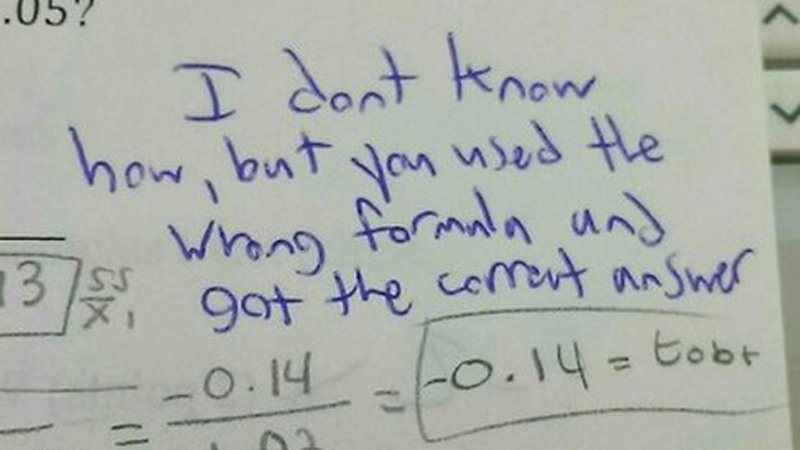 .05?
I dont know
how, but you used the
wrong formula and
got the correct answer
13 SS/X₁
= -0.14 / 1.03 = -0.14 = tobt